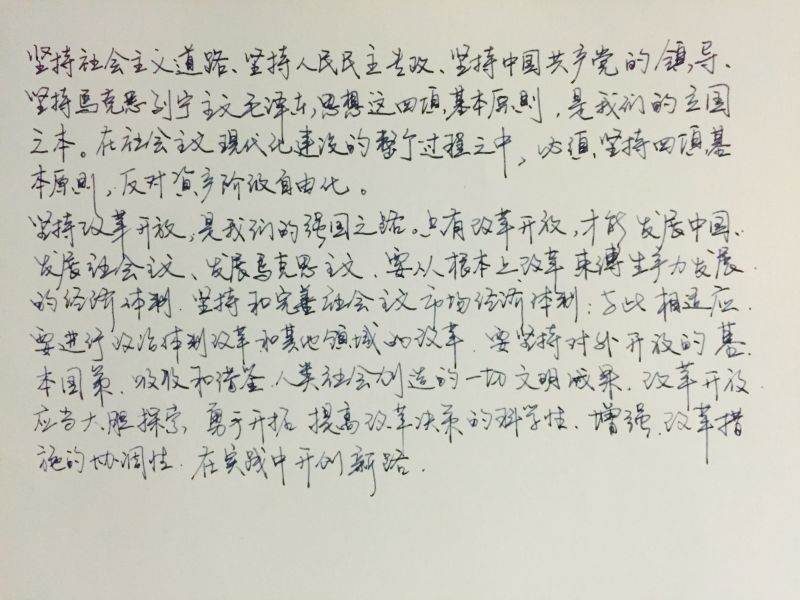 坚持社会主义道路、坚持人民民主专政、坚持中国共产党的领导、
坚持马克思列宁主义毛泽东思想这四项基本原则，是我们的立国
之本。在社会主义现代化建设的整个过程之中，必须坚持四项基
本原则，反对资产阶级自由化。
坚持改革开放，是我们的强国之路。只有改革开放，才能发展中国、
发展社会主义、发展马克思主义．要从根本上改革束缚生产力发展
的经济体制．坚持和完善社会主义市场经济体制；与此相适应．
要进行政治体制改革和其他领域的改革．要坚持对外开放的基
本国策．吸收和借鉴人类社会创造的一切文明成果．改革开放
应当大胆探索，勇于开拓．提高改革决策的科学性．增强改革措
施的协调性．在实践中开创新路．